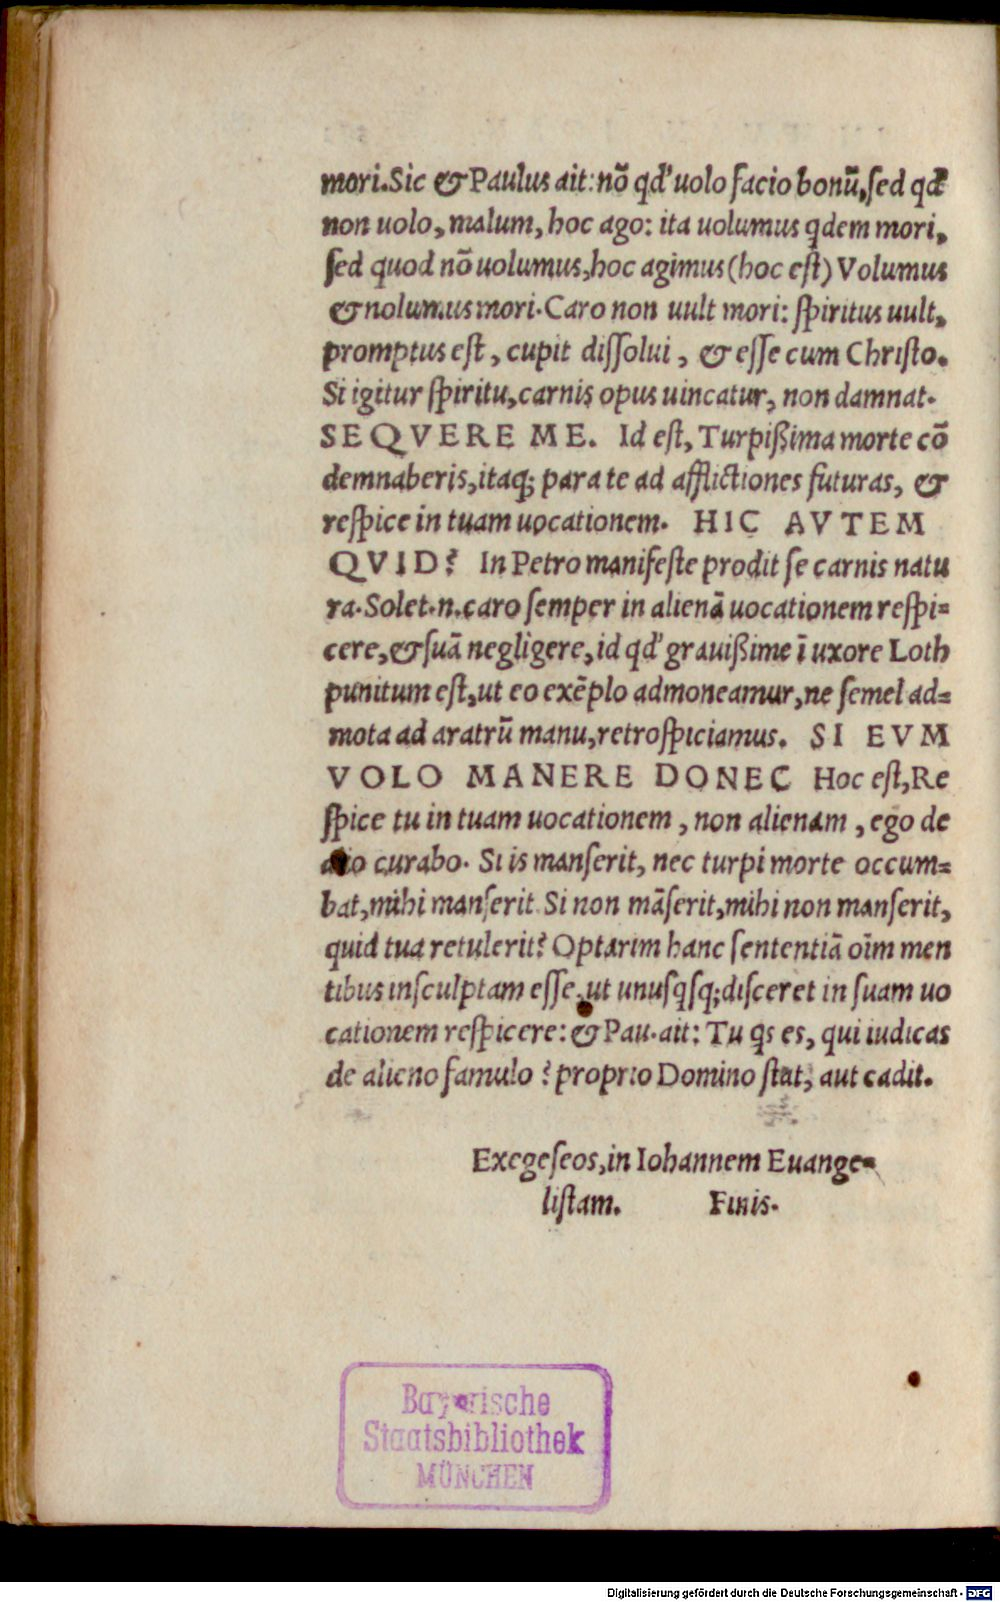 mori. Sic & Paulus ait: nõ qd' uolo facio bonũ, sed qd'
non uolo, malum, hoc ago: ita uolumus qdem mori,
sed quod nõ uolumus, hoc agimus (hoc est) Volumus
& nolumus mori. Caro non uult mori: spiritus uult,
promptus est, cupit dissolui, & esse cum Christo.
Si igitur spiritu, carnis opus uincatur, non damnat.
SEQVERE ME. Id est, Turpißima morte cõ
demnaberis, itaq; para te ad afflictiones futuras, &
respice in tuam uocationem. HIC AVTEM
QVID? In Petro manifeste prodit se carnis natu
ra. Solet .n. caro semper in alienã uocationem respi=
cere, & suã negligere, id qd' grauißime ĩ uxore Loth
punitum est, ut eo exẽplo admoneamur, ne semel ad=
mota ad aratrũ manu, retrospiciamus. SI EVM
VOLO MANERE DONEC Hoc est, Re
spice tu in tuam uocationem, non alienam, ego de
curabo. Si is manserit, nec turpi morte occum=
bat, mihi manserit Si non mãserit, mihi non manserit,
quid tua retulerit? Optarim hanc sententiã oĩm men
tibus insculptam esse, ut unusqsq; disceret in suam uo
cationem respicere: & Pau. ait: Tu qs es, qui iudicas
de alieno famulo? proprio Domino stat, aut cadit.
Exegeseos, in Iohannem Euange=
listam. Finis.
Bayerische
Staatsbibliothek
MÜNCHEN
Digitalisierung gefördert durch die Deutsche Forschungsgemeinschaft - DFG